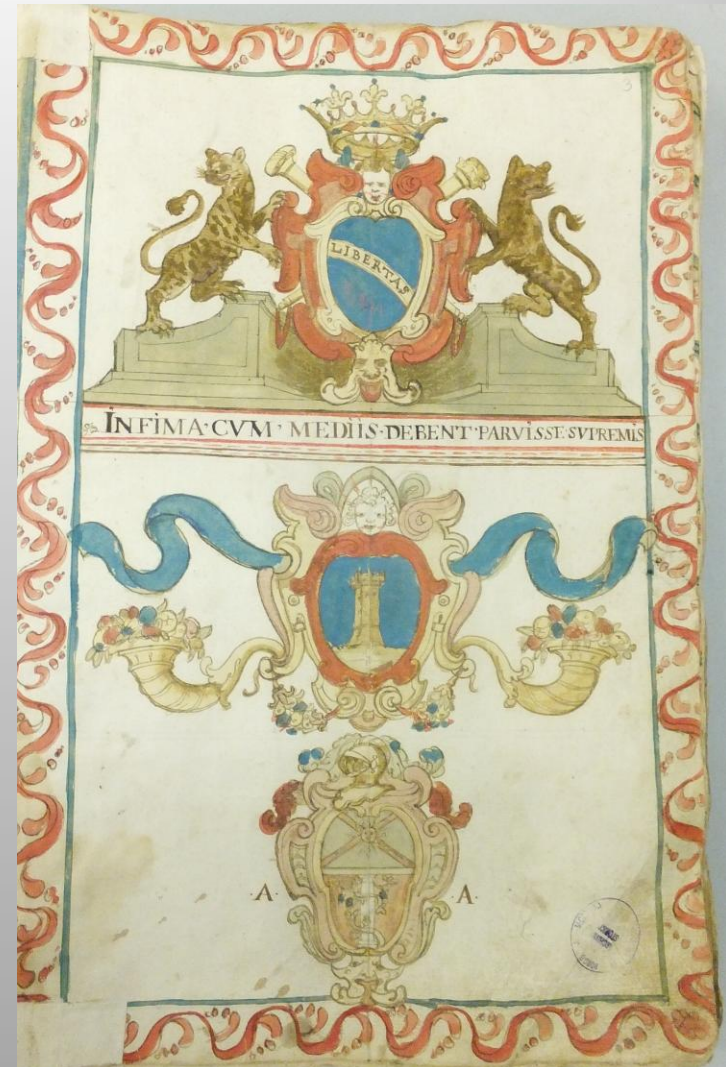 3
LIBERTAS
INFIMA·CVM·MEDIIS·DEBENT·PARVISSE·SVPREMIS
·A· A·